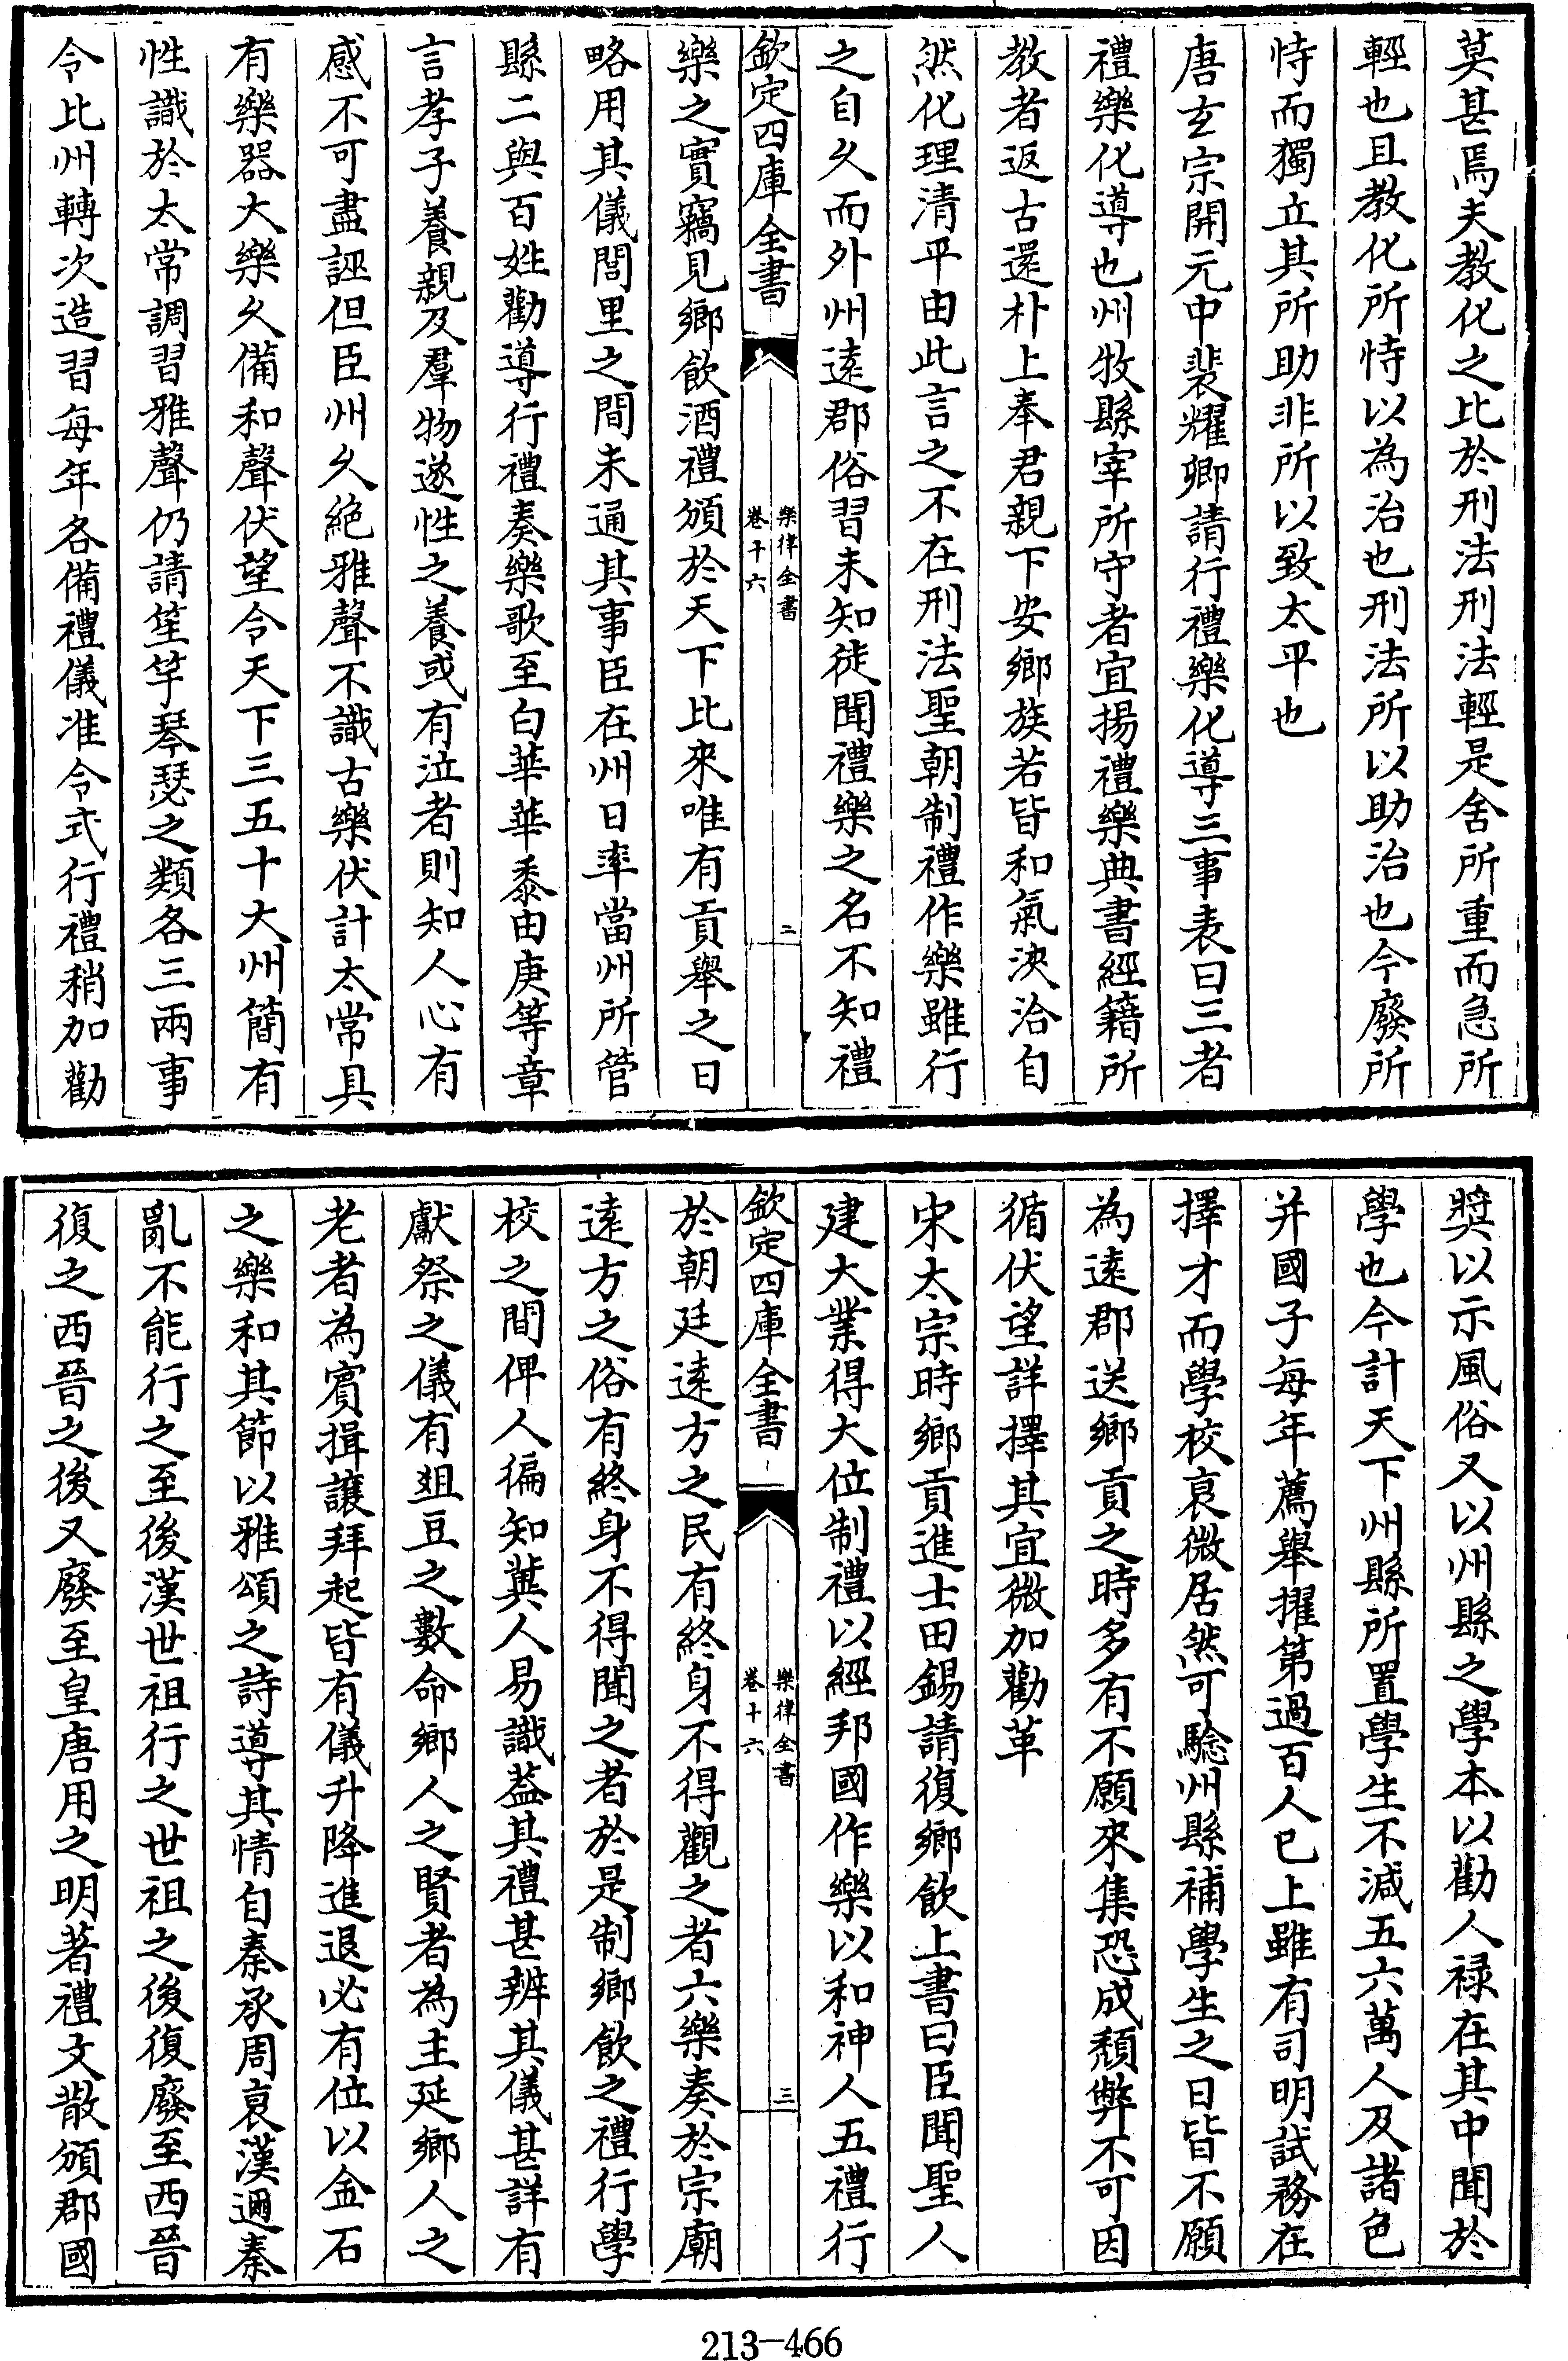 莫甚焉夫教化之比於刑法刑法輕是舍所重而急所
輕也且教化所恃以為治也刑法所以助治也今廢所
恃而獨立其所助非所以致太平也
唐玄宗開元中裴耀卿請行禮樂化導三事表曰三者
禮樂化導也州牧縣宰所守者宜揚禮樂典書經籍所
教者返古還朴上奉君親下安鄉族若皆和氣浹洽自
然化理清平由此言之不在刑法聖朝制禮作樂雖行
之自久而外州遠郡俗習未知徒聞禮樂之名不知禮
欽定四庫全書
樂律全書
卷十六
二
樂之實竊見鄉飲酒禮頒於天下比來唯有貢舉之日
略用其儀閭里之間未通其事臣在州日率當州所管
縣二與百姓勸導行禮奏樂歌至白華華黍由庚等章
言孝子養親及羣物遂性之養或有泣者則知人心有
感不可盡誣但臣州久絕雅聲不識古樂伏計太常具
有樂器大樂久備和聲伏望令天下三五十大州簡有
性識於太常調習雅聲仍請笙竽琴瑟之類各三兩事
令比州轉次造習每年各備禮儀准令式行禮稍加勸
獎以示風俗又以州縣之學本以勸人祿在其中聞於
學也今計天下州縣所置學生不減五六萬人及諸色
并國子每年薦舉擢第過百人已上雖有司明試務在
擇才而學校衰微居然可驗州縣補學生之日皆不願
為遠郡送鄉貢之時多有不願來集恐成頹弊不可因
循伏望詳擇其宜微加勸革
宋太宗時鄉貢進士田錫請復鄉飲上書曰臣聞聖人
建大業得大位制禮以經邦國作樂以和神人五禮行
欽定四庫全書
樂律全書
卷十六
三
於朝廷遠方之民有終身不得觀之者六樂奏於宗廟
遠方之俗有終身不得聞之者於是制鄉飲之禮行學
校之間俾人徧知冀人易識葢其禮甚辨其儀甚詳有
獻祭之儀有爼豆之數命鄉人之賢者為主延鄉人之
老者為賓揖讓拜起皆有儀升降進退必有位以金石
之樂和其節以雅頌之詩導其情自秦承周衰漢邇秦
亂不能行之至後漢世祖行之世祖之後復廢至西晉
復之西晉之後又廢至皇唐用之明著禮文散頒郡國
213-466